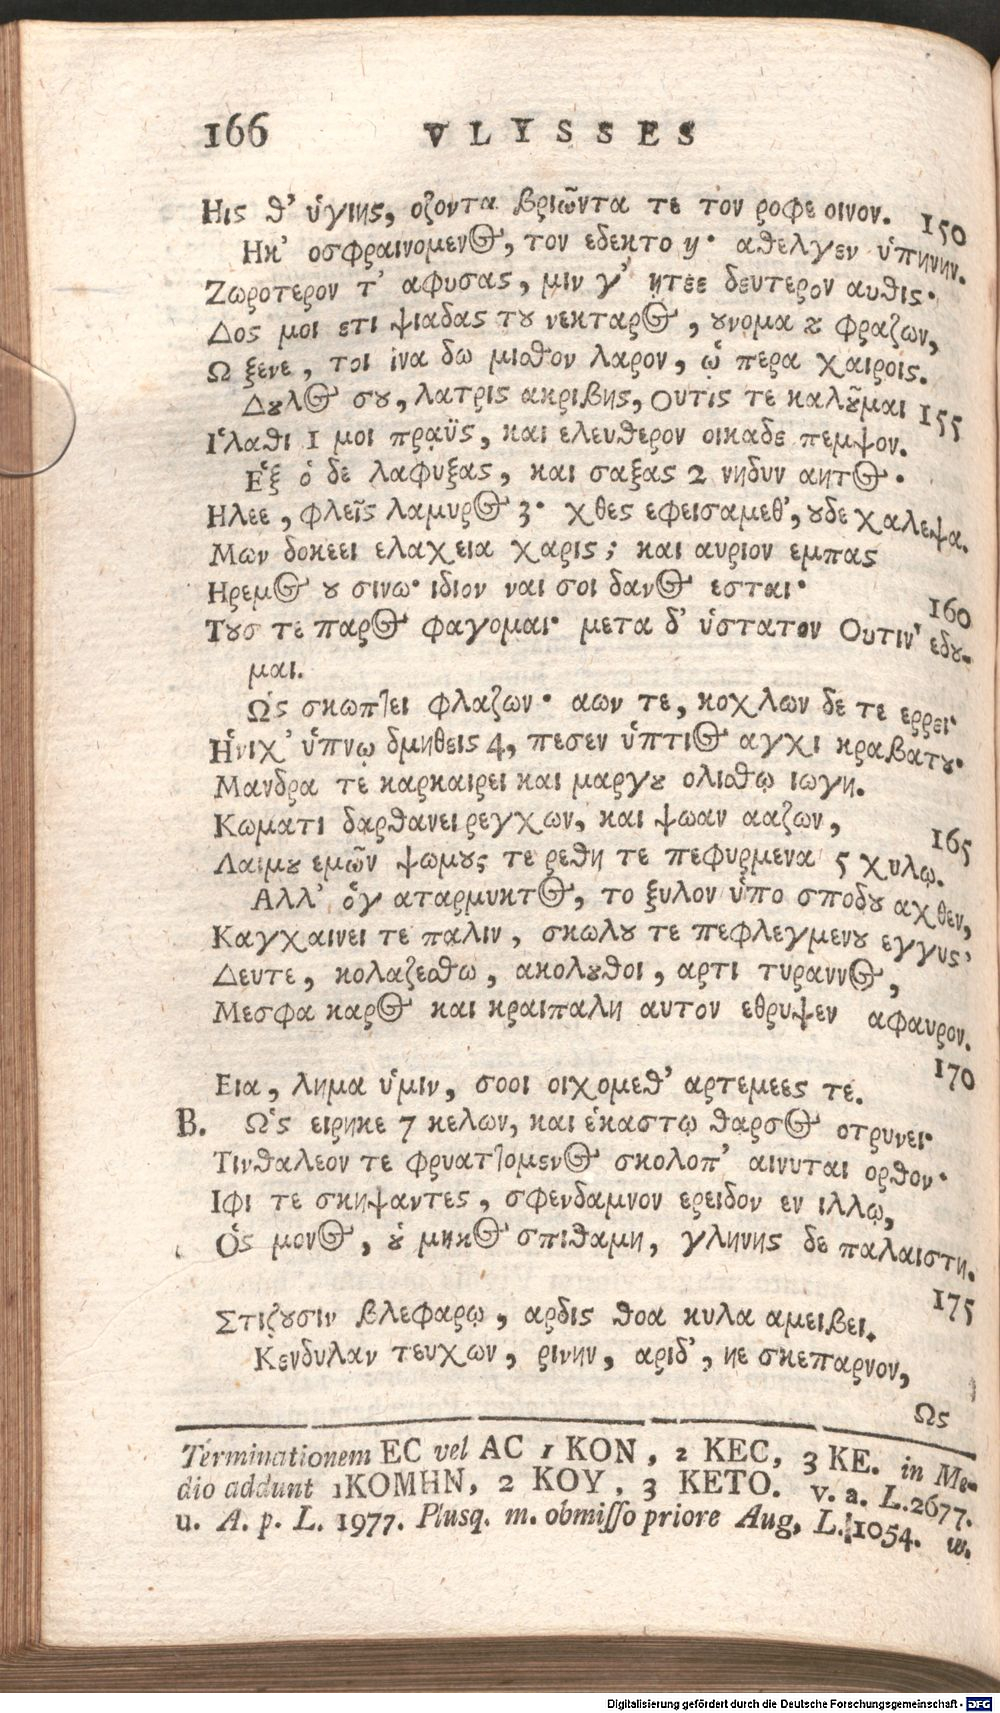 166 VLYSSES
Ηις θ' ὑγιης, οζοντα βριῶντα τε τον ροφε οινον. 150
Ηκ' οσφραινομενος, τον εδεκτο γ· αθελγεν ὑπηνην.
Ζωροτερον τ' αφυσας, μιν γ' ητεε δευτερον αυθις·
Δος μοι ετι ψιαδας του νεκταρος, ουνομα φραζων,
Ω ξενε, τοι ἱνα δω μισθον λαρον, ᾡ περα χαιροις.
Δουλος σου, λατρις ακριβης, Ουτις τε καλοῦμαι 155
Ἱλαθι 1 μοι πραῢς, και ελευθερον οικαδε πεμψον.
Ἑξ ὁ δε λαφυξας, και σαξας 2 νηδυν αητος·
Ηλεε, φλεῖς λαμυρος 3· χθες εφεισαμεθ', ουδε χαλεψα.
Μων δοκεει ελαχεια χαρις; και αυριον εμπας
Ηρεμος ου σινω· ιδιον ναι σοι δανος εσται· 160
Τους τε παρος φαγομαι· μετα δ' ὑστατον Ουτιν' εδου-
μαι.
Ὡς σκωπτει φλαζων· αων τε, κοχλων δε τε ερρει·
Ἡνιχ' ὑπνῳ δμηθεις 4, πεσεν ὑπτιος αγχι κραβατου·
Μανδρα τε καρκαιρει και μαργου ολισθῳ ιωγη.
Κωματι δαρθανει ρεγχων, και ψωαν ααζων, 165
Λαιμου εμῶν ψωμους τε ρεθη τε πεφυρμενα 5 χυλῳ.
Αλλ' ὁγ αταρμυκτος, το ξυλον ὑπο σποδου αχθεν,
Καγχαινει τε παλιν, σκωλου τε πεφλεγμενου εγγυς·
Δευτε, κολαζεσθω, ακολουθοι, αρτι τυραννος,
Μεσφα καρος και κραιπαλη αυτον εθρυψεν αφαυρον.
Εια, λημα ὑμιν, σοοι οιχομεθ' αρτεμεες τε. 170
B. Ὡς ειρηκε 7 κελων, και ἑκαστῳ θαρσος οτρυνει·
Τινθαλεον τε φρυαττομενος σκολοπ' αινυται ορθον·
Ιφι τε σκηψαντες, σφενδαμνον ερειδον εν ιλλῳ,
Ὁς μονος, οὑ μηκος σπιθαμη, γληνης δε παλαιστη.
Στιζουσιν βλεφαρῳ, αρδις θοα κυλα αμειβει. 175
Κενδυλαν τευχων, ρινην, αριδ', ηε σκεπαρνον,
Ως
Terminationem EC vel AC 1 KON, 2 KEC, 3 KE. in Me-
dio addunt 1KOMHN, 2 KOY, 3 KETO. v. a. L.2677.
u. A. p. L. 1977. Plusq. m. obmisso priore Aug, L. 1054. w.
Digitalisierung gefördert durch die Deutsche Forschungsgemeinschaft - DFG